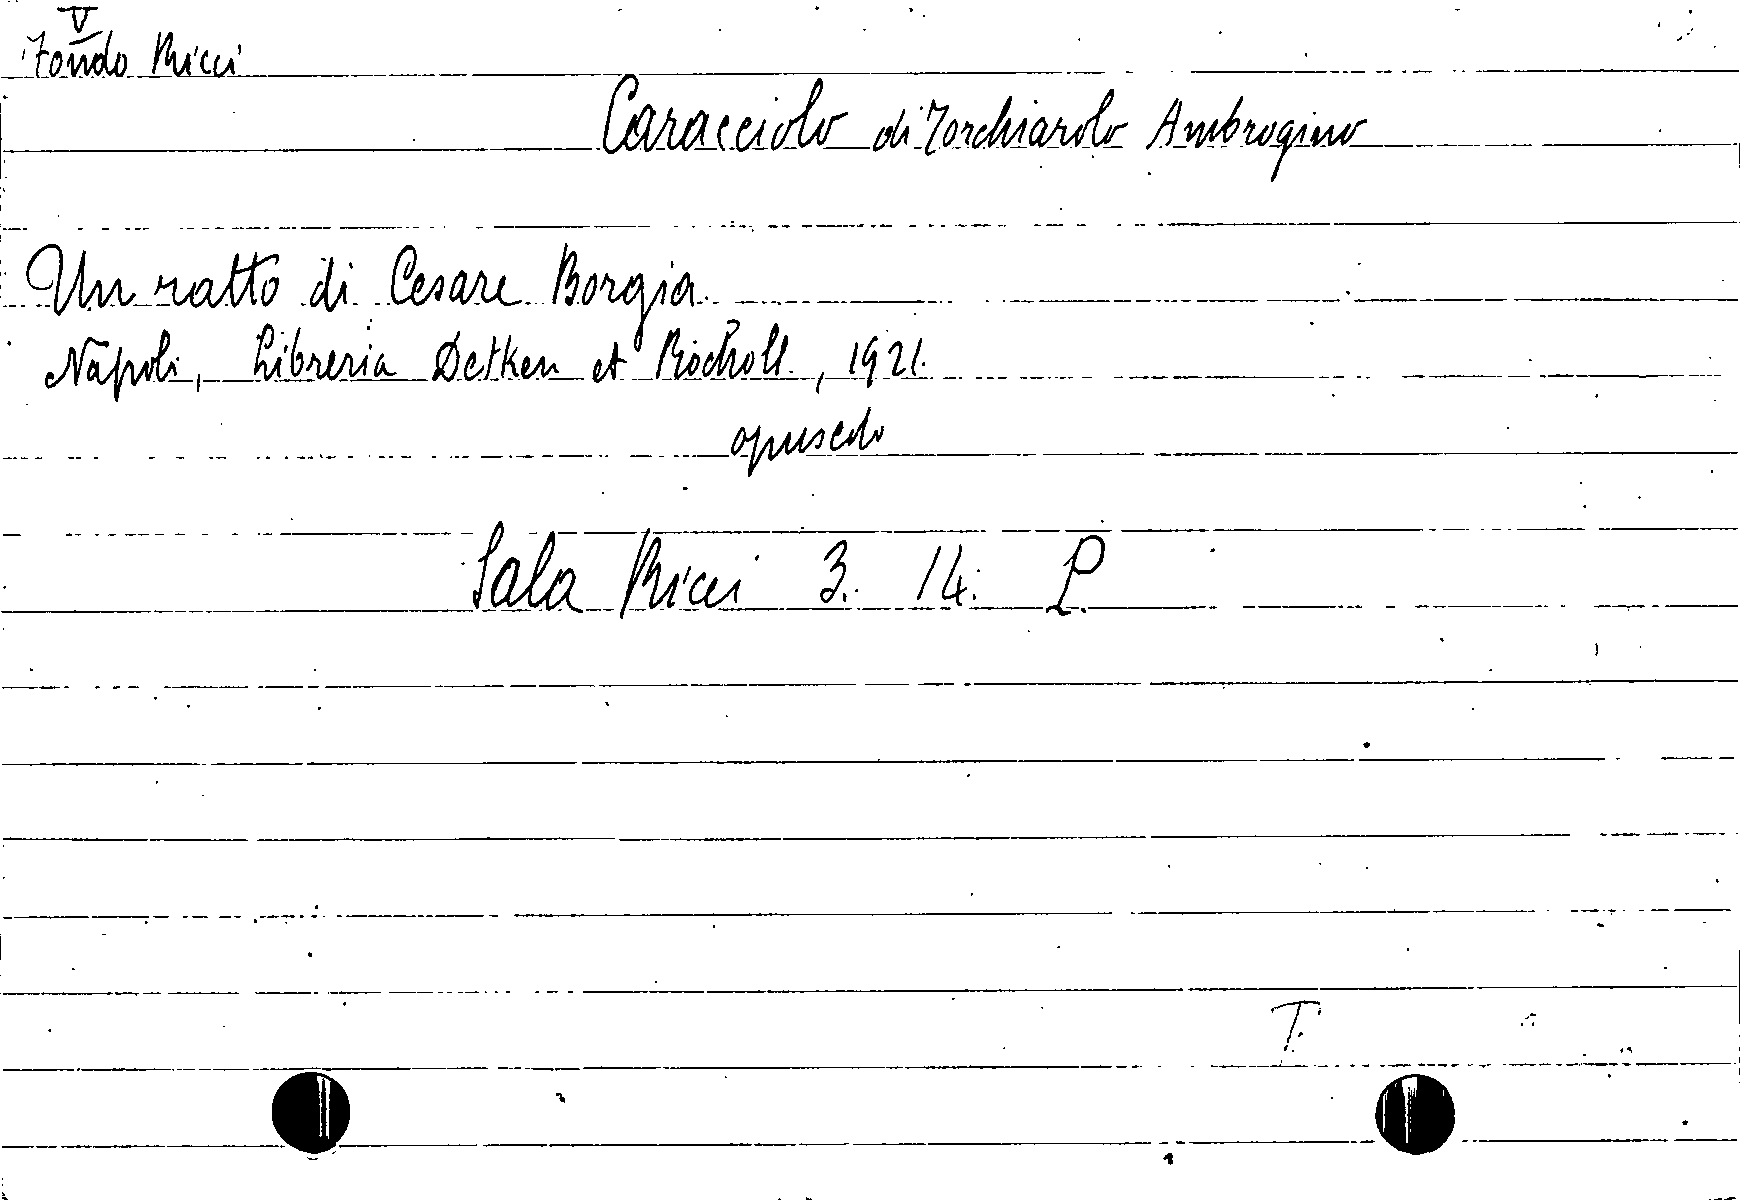 V
Fondo Ricci
Caracciolo di Torchiarolo Ambrogino
Un ratto di Cesare Borgia.
Napoli, Libreria Detken et Rocholl., 1921.
opuscolo
Sala Ricci 3. 14. P.
T.